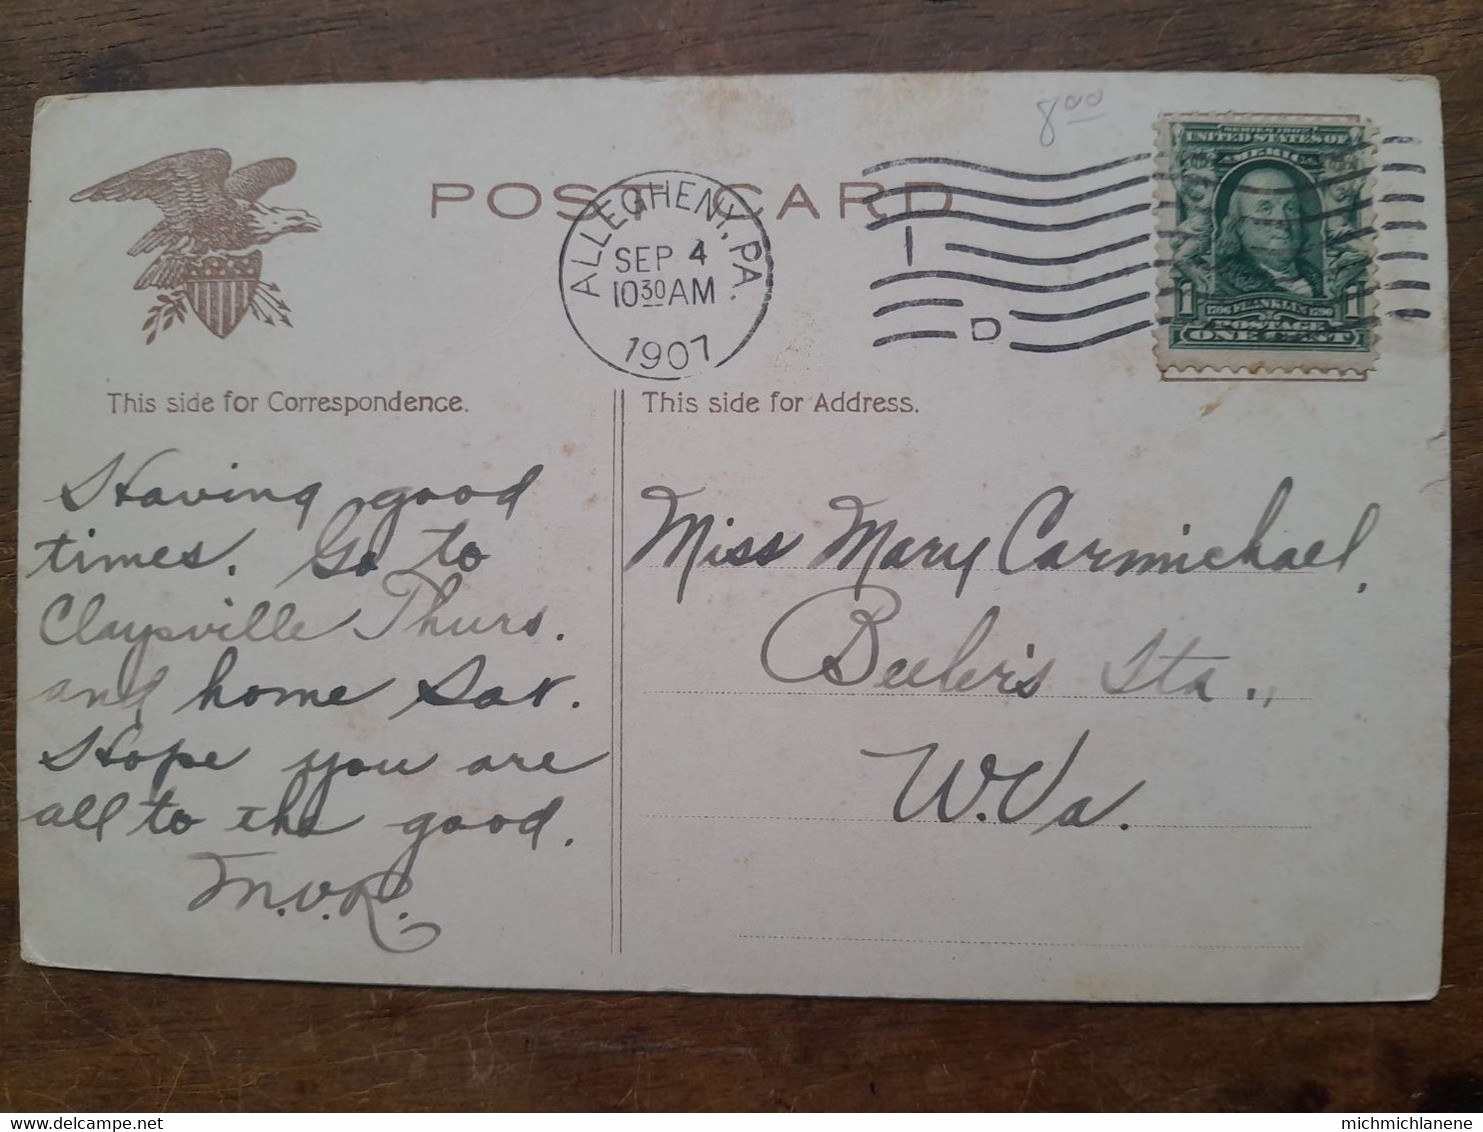 8.00
POST CARD
ALLEGHENY, PA.
SEP 4
10 30 AM
1907
I
D
SERIES 1902
UNITED STATES OF
AMERICA
1 FRANKLIN 1
1706 1790
POSTAGE
ONE CENT
This side for Correspondence.
Having good
times. Go to
Claysville Thurs.
and home Sat.
Hope you are
all to the good.
M.V.R.
This side for Address.
Miss Mary Carmichael,
Beeler's Sta.,
W.Va.
delcampe.net
michmichlanene